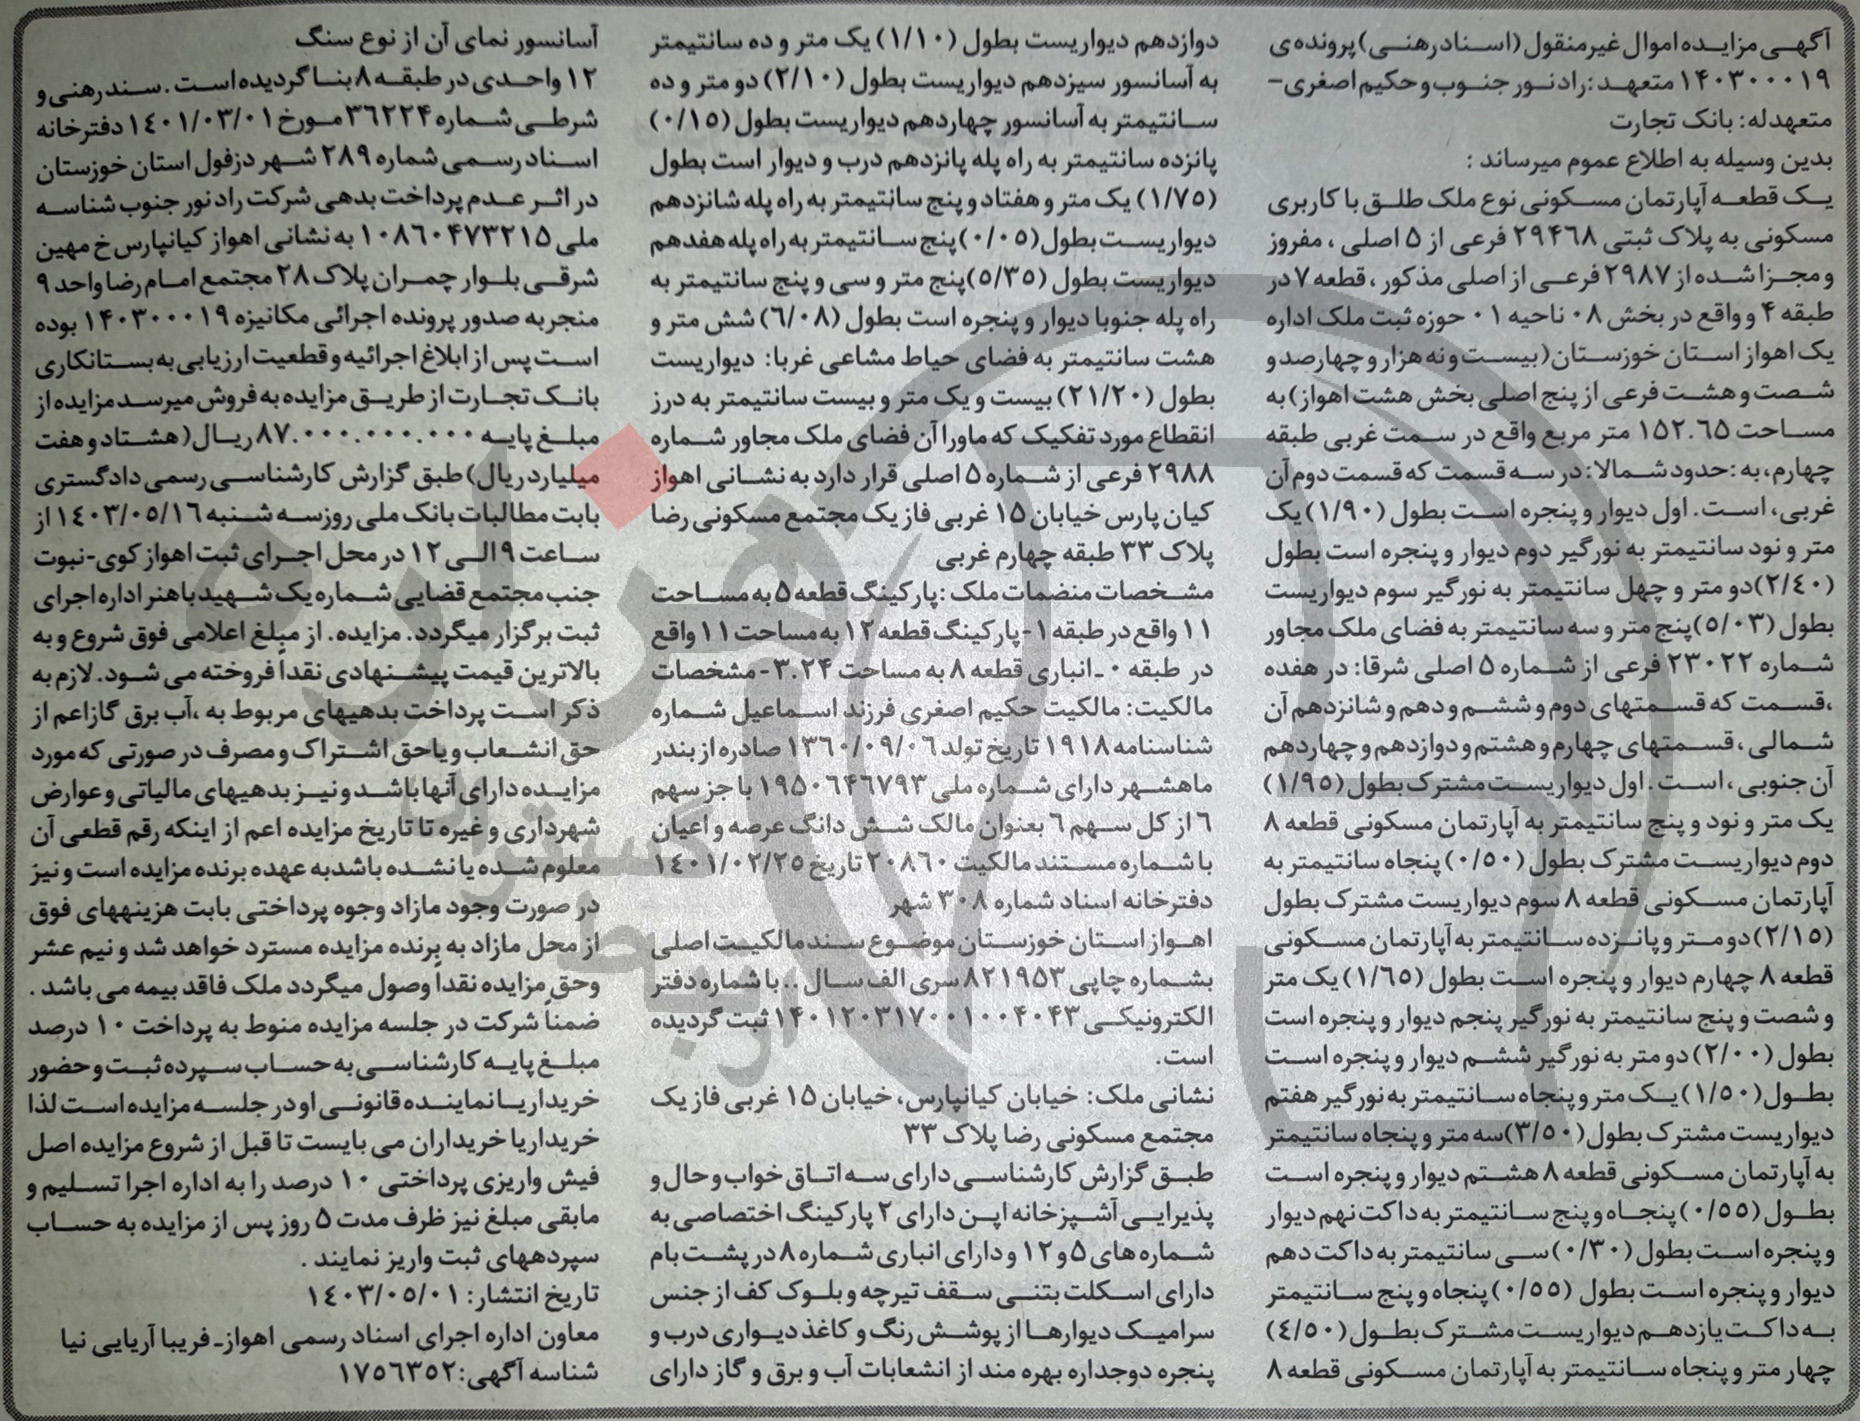 آگهـی مزایـده اموال غیرمنقول (اسـنادرهنـی) پرونده‌ی
۱۴۰۳۰۰۰۱۹ متعهـد: رادنـور جنـوب و حکیم اصغری-
متعهدله: بانک تجارت
بدین وسیله به اطلاع عموم میرساند :
یـک قطعـه آپارتمان مسـکونی نوع ملک طلـق با کاربری
مسکونی به پلاک ثبتی ۲۹۴۶۸ فرعی از ۵ اصلی ، مفروز
و مجـزا شـده از ۲۹۸۷ فرعـی از اصلی مذکور ، قطعه ۷ در
طبقه ۴ و واقع در بخش ۰۸ ناحیه ۰۱ حوزه ثبت ملک اداره
یک اهواز استان خوزستان (بیسـت و نه هزار و چهارصد و
شـصت و هشت فرعی از پنج اصلی بخش هشت اهواز) به
مسـاحت ۱۵۲.۶۵ متر مربع واقع در سـمت غربی طبقه
چهارم، به :حدود شـمالا: در سه قسمت که قسمت دوم آن
غربی، است. اول دیوار و پنجره است بطول (۱/۹۰) یک
متر و نود سانتیمتر به نورگیر دوم دیوار و پنجره است بطول
(۲/۴۰) دو متر و چهل سانتیمتر به نورگیر سوم دیواریست
بطول (۵/۰۳) پنج متر و سه سانتیمتر به فضای ملک مجاور
شـماره ۲۳۰۲۲ فرعی از شـماره ۵ اصلی شرقا: در هفده
،قسـمت که قسـمتهای دوم و ششـم و دهم و شانزدهم آن
شـمالی ، قسـمتهای چهارم و هشتم و دوازدهم و چهاردهم
آن جنوبی ، اسـت . اول دیواریسـت مشترک بطول (۱/۹۵)
یک متر و نود و پنج سانتیمتر به آپارتمان مسکونی قطعه ۸
دوم دیواریسـت مشترک بطول (۰/۵۰) پنجاه سانتیمتر به
آپارتمان مسکونی قطعه ۸ سوم دیواریست مشترک بطول
(۲/۱۵) دو متـر و پانـزده سـانتیمتر به آپارتمان مسـکونی
قطعه ۸ چهارم دیوار و پنجره اسـت بطول (۱/۶۵) یک متر
و شصت و پنج سانتیمتر به نورگیر پنجم دیوار و پنجره است
بطول (۲/۰۰) دو متر به نورگیر ششـم دیوار و پنجره اسـت
بطـول (۱/۵۰) یـک متر و پنجاه سـانتیمتر به نورگیر هفتم
دیواریست مشترک بطول (۳/۵۰) سه متر و پنجاه سانتیمتر
به آپارتمان مسـکونی قطعه ۸ هشـتم دیوار و پنجره اسـت
بطـول (۰/۵۵) پنجـاه و پنج سـانتیمتر به داکت نهم دیوار
و پنجره اسـت بطول (۰/۳۰) سـی سانتیمتر به داکت دهم
دیوار و پنجره اسـت بطول (۰/۵۵) پنجاه و پنج سـانتیمتر
بـه داکـت یازدهـم دیواریسـت مشـترک بطـول (۴/۵۰)
چهار متر و پنجاه سـانتیمتر به آپارتمان مسـکونی قطعه ۸
دوازدهم دیواریست بطول (۱/۱۰) یک متر و ده سانتیمتر
به آسانسور سیزدهم دیواریست بطول (۲/۱۰) دو متر و ده
سـانتیمتر به آسانسور چهاردهم دیواریست بطول (۰/۱۵)
پانزده سانتیمتر به راه پله پانزدهم درب و دیوار است بطول
(۱/۷۵) یک متر و هفتاد و پنج سانتیمتر به راه پله شانزدهم
دیواریسـت بطول (۰/۰۵) پنج سـانتیمتر به راه پله هفدهم
دیواریست بطول (۵/۳۵) پنج متر و سی و پنج سانتیمتر به
راه پله جنوبا دیوار و پنجره است بطول (۶/۰۸) شش متر و
هشت سانتیمتر به فضای حیاط مشاعی غربا: دیواریست
بطول (۲۱/۲۰) بیست و یک متر و بیست سانتیمتر به درز
انقطاع مورد تفکیک که ماورا آن فضای ملک مجاور شـماره
۲۹۸۸ فرعی از شـماره ۵ اصلی قرار دارد به نشـانی اهواز
کیان پارس خیابان ۱۵ غربی فاز یک مجتمع مسکونی رضا
پلاک ۳۳ طبقه چهارم غربی
مشـخصات منضمات ملک :پارکینگ قطعه ۵ به مسـاحت
۱۱ واقع در طبقه ۱-پارکینگ قطعه ۱۲ به مساحت ۱۱ واقع
در طبقه ۰ ـ انباری قطعه ۸ به مساحت ۳.۲۴ - مشخصات
مالکیت: مالکیت حکیم اصغری فرزند اسـماعیل شـماره
شناسنامه ۱۹۱۸ تاریخ تولد ۱۳۶۰/۰۹/۰۶ صادره از بندر
ماهشـهر دارای شـماره ملی ۱۹۵۰۶۴۶۷۹۳ با جز سهم
۶ از کل سـهم ۶ بعنوان مالک شـش دانگ عرصه و اعیان
با شـماره مسـتند مالکیت ۲۰۸۶۰ تاریخ ۱۴۰۱/۰۲/۲۵
دفترخانه اسناد شماره ۳۰۸ شهر
اهـواز اسـتان خوزسـتان موضـوع سـند مالکیـت اصلی
بشـماره چاپی ۸۲۱۹۵۳ سری الف سـال .. با شماره دفتر
الکترونیکـی ۱۴۰۱۲۰۳۱۷۰۰۱۰۰۴۰۴۳ ثبت گردیده
است.
نشانی ملک: خیابان کیانپارس، خیابان ۱۵ غربی فاز یک
مجتمع مسکونی رضا پلاک ۳۳
طبـق گزارش کارشناسـی دارای سـه اتـاق خواب و حال و
پذیرایـی آشـپزخانه اپـن دارای ۲ پارکینگ اختصاصی به
شـماره های ۵ و ۱۲ و دارای انباری شـماره ۸ در پشـت بام
دارای اسـکلت بتنـی سـقف تیرچه و بلـوک کف از جنس
سـرامیـک دیوارهـا از پوشـش رنگ و کاغذ دیـواری درب و
پنجره دوجداره بهره مند از انشعابات آب و برق و گاز دارای
آسانسور نمای آن از نوع سنگ
۱۲ واحـدی در طبقـه ۸ بنـا گردیده اسـت . سـند رهنی و
شرطی شـماره ۳۶۲۲۴ مـورخ ۱۴۰۱/۰۳/۰۱ دفترخانه
اسـناد رسـمی شماره ۲۸۹ شـهر دزفول استان خوزستان
در اثـر عـدم پرداخت بدهی شرکت راد نور جنوب شناسـه
ملی ۱۰۸۶۰۴۷۳۲۱۵ به نشانی اهواز کیانپارس خ مهین
شرقـی بلـوار چمـران پلاک ۲۸ مجتمع امـام رضا واحد ۹
منجر به صدور پرونده اجرائی مکانیزه ۱۴۰۳۰۰۰۱۹ بوده
اسـت پس از ابلاغ اجرائیه و قطعیت ارزیابی به بسـتانکاری
بانـک تجـارت از طریـق مزایده به فروش میرسـد مزایده از
مبلـغ پایـه ۸۷.۰۰۰.۰۰۰.۰۰۰ ریـال (هشـتاد و هفت
میلیارد ریال) طبق گزارش کارشناسـی رسمی دادگستری
بابت مطالبات بانک ملی روز سه شـنبه ۱۴۰۳/۰۵/۱۶ از
سـاعت ۹ الـی ۱۲ در محل اجـرای ثبت اهواز کوی-نبوت
جنب مجتمع قضایی شـماره یک شـهید باهنر اداره اجرای
ثبت برگزار میگردد. مزایده. از مبلغ اعلامی فوق شروع و به
بالاترین قیمت پیشـنهادی نقداً فروخته می شـود. لازم به
ذکر اسـت پرداخت بدهیهای مربوط به ،آب برق گاز اعم از
حق انشـعاب و یا حق اشـتراک و مصرف در صورتی که مورد
مزایـده دارای آنها باشد و نیـز بدهیهای مالیاتی و عوارض
شهرداری و غیره تا تاریخ مزایده اعم از اینکه رقم قطعی آن
معلوم شـده یا نشـده باشد به عهده برنده مزایده است و نیز
در صورت وجود مازاد وجوه پرداختی بابت هزینههای فوق
از محل مازاد به برنده مزایده مسترد خواهد شد و نیم عشر
وحق مزایده نقداً وصول میگردد ملک فاقد بیمه می باشد .
ضمناً شرکت در جلسه مزایده منوط به پرداخت ۱۰ درصد
مبلـغ پایـه کارشناسـی به حسـاب سـپرده ثبـت و حضور
خریدار یـا نماینـده قانونـی او در جلسـه مزایده اسـت لذا
خریدار یا خریداران می بایست تا قبل از شروع مزایده اصل
فیش واریزی پرداختی ۱۰ درصد را به اداره اجرا تسـلیم و
مابقی مبلغ نیز ظرف مدت ۵ روز پس از مزایده به حسـاب
سپردههای ثبت واریز نمایند .
تاریخ انتشار: ۱۴۰۳/۰۵/۰۱
معاون اداره اجرای اسناد رسمی اهواز ـ فریبا آریایی نیا
شناسه آگهی: ۱۷۵۶۳۵۲